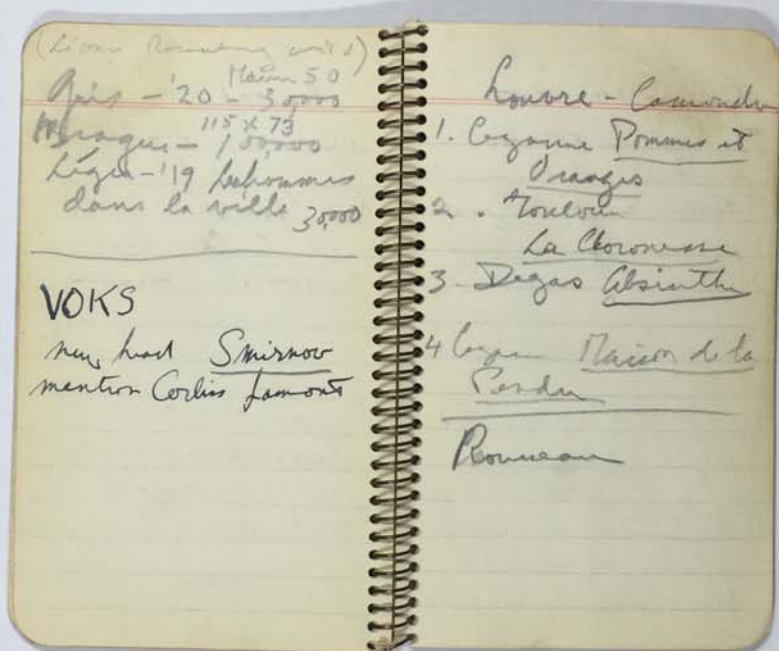 (Léonce Rosenberg
50
Gris - '20 - 30,000
115 x 73
Braque - 100,000
Léger - '19 hommes
dans la ville 30,000
VOKS
new head Smirnov
mention Corliss Lamont
Louvre - Camondo
1. Cezanne Pommes et
Oranges
2. Toulouse
La Clownesse
3 - Degas Absinthe
4 Cezanne Maison de la
Pendu
Rousseau